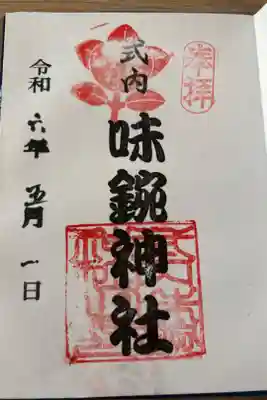 奉拝
式内
味鋺神社
令和六年五月一日